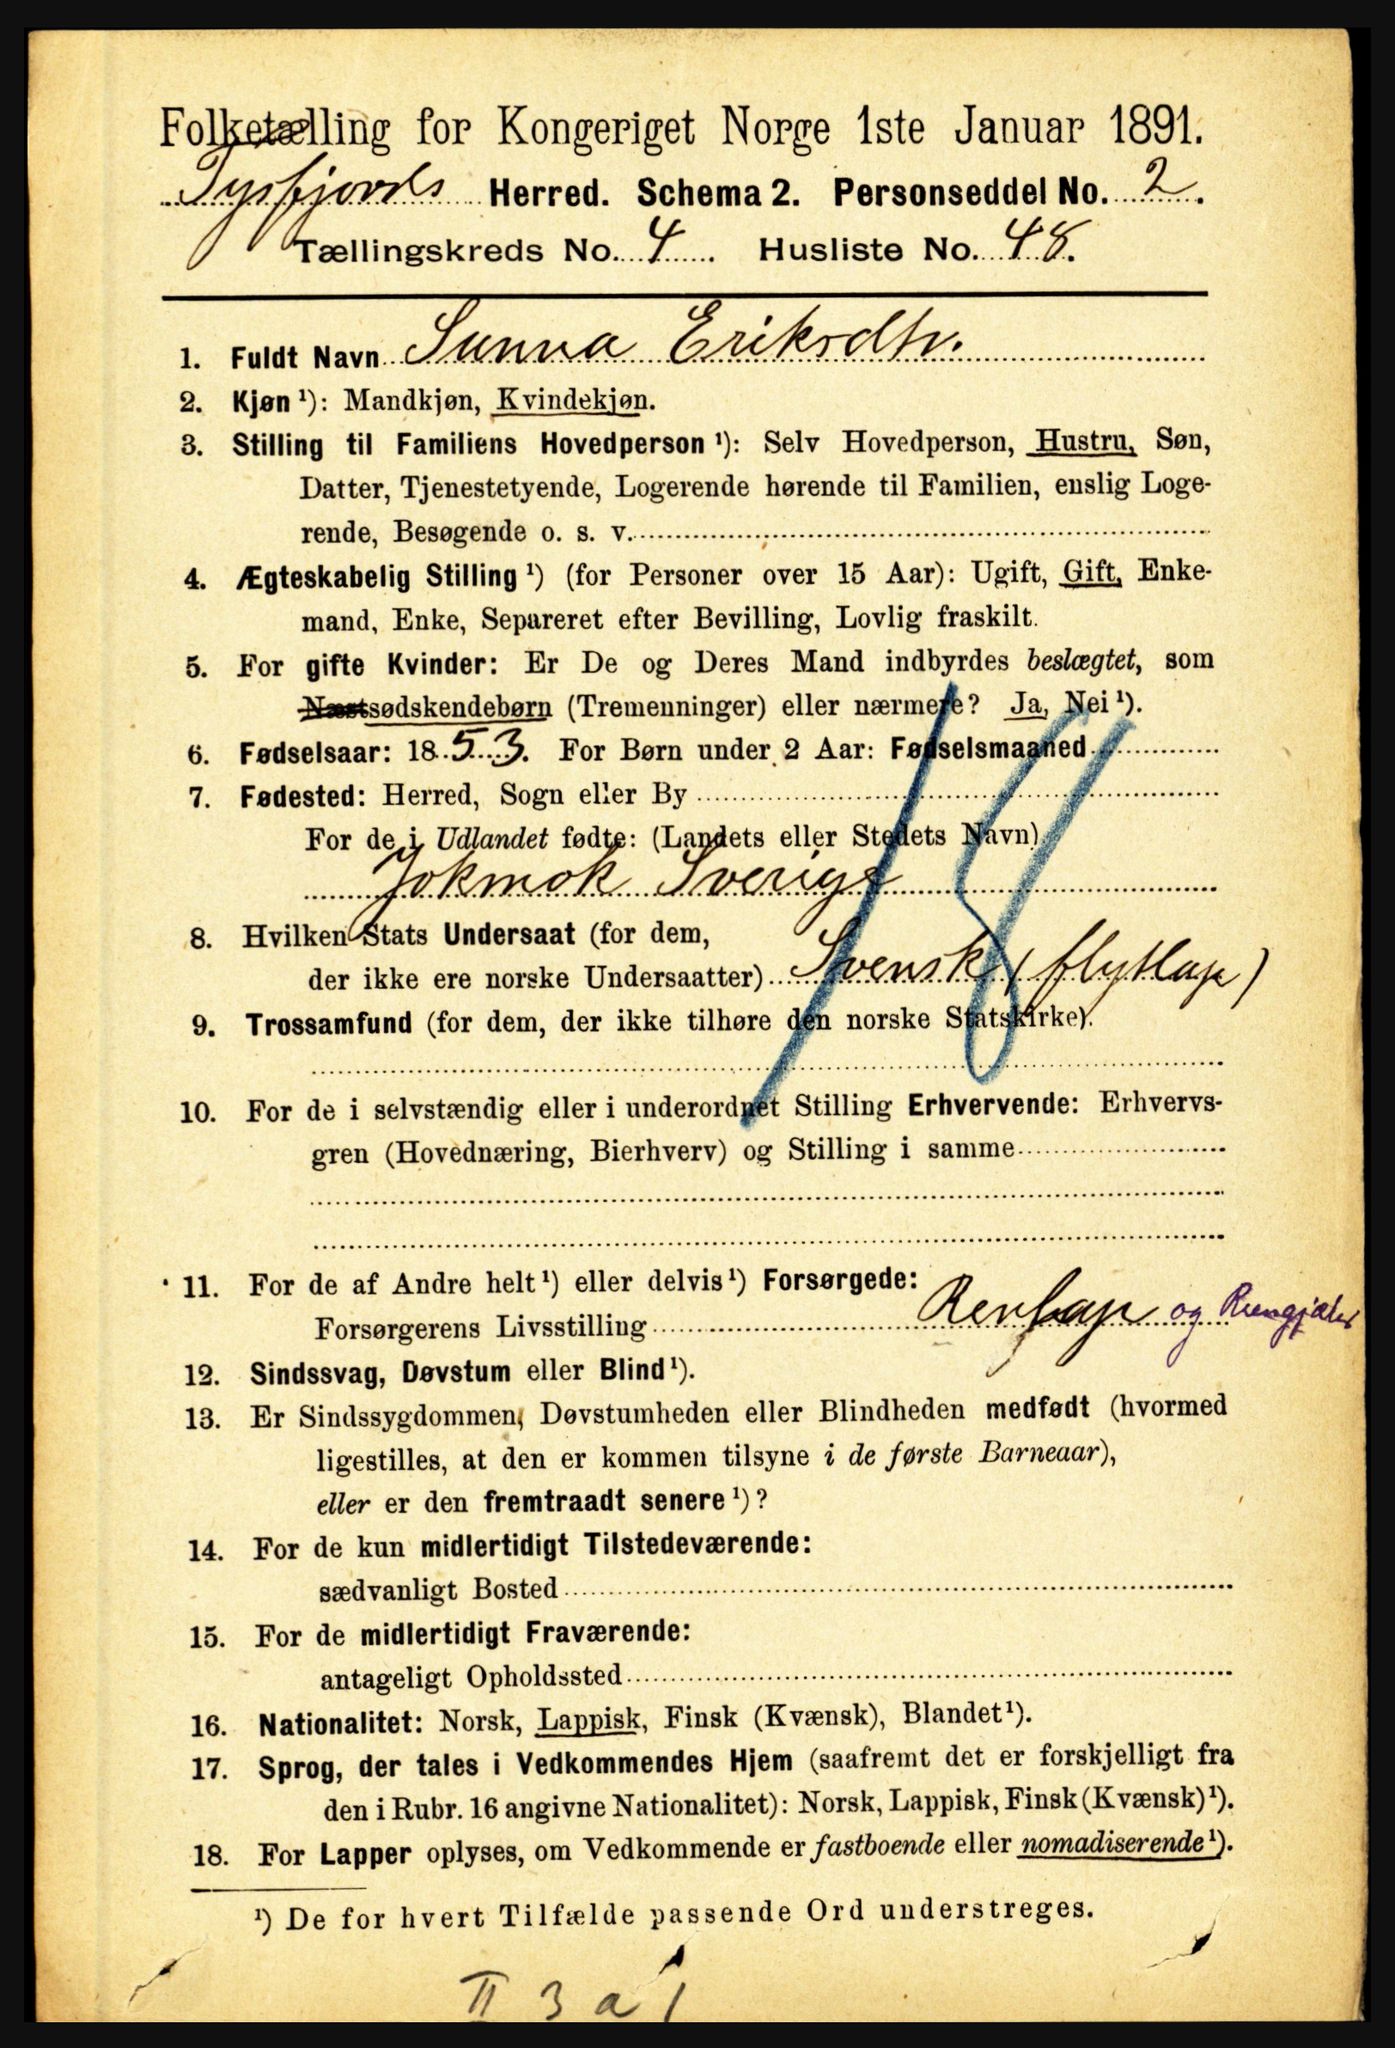 Folketælling for Kongeriget Norge 1ste Januar 1891.
Tysfjords Herred. Schema 2. Personseddel No. 2.
Tællingskreds No. 4. Husliste No. 48.
1. Fuldt Navn Sunna Eriksdtr.
2. Kjøn ¹): Mandkjøn, Kvindekjøn.
3. Stilling til Familiens Hovedperson ¹): Selv Hovedperson, Hustru, Søn,
Datter, Tjenestetyende, Logerende hørende til Familien, enslig Loge-
rende, Besøgende o. s. v.
4. Ægteskabelig Stilling ¹) (for Personer over 15 Aar): Ugift, Gift, Enke-
mand, Enke, Separeret efter Bevilling, Lovlig fraskilt.
5. For gifte Kvinder: Er De og Deres Mand indbyrdes beslægtet, som
Næstsødskendebørn (Tremenninger) eller nærmere? Ja, Nei ¹).
6. Fødselsaar: 1853. For Børn under 2 Aar: Fødselsmaaned
7. Fødested: Herred, Sogn eller By
For de i Udlandet fødte: (Landets eller Stedets Navn)
Jokmok Sverige
8. Hvilken Stats Undersaat (for dem,
der ikke ere norske Undersaatter) Svensk (flytlap)
9. Trossamfund (for dem, der ikke tilhøre den norske Statskirke).
10. For de i selvstændig eller i underordnet Stilling Erhvervende: Erhvervs-
gren (Hovednæring, Bierhverv) og Stilling i samme
11. For de af Andre helt ¹) eller delvis ¹) Forsørgede:
Forsørgerens Livsstilling Renlap og Rengjæter
12. Sindssvag, Døvstum eller Blind ¹).
13. Er Sindssygdommen, Døvstumheden eller Blindheden medfødt (hvormed
ligestilles, at den er kommen tilsyne i de første Barneaar),
eller er den fremtraadt senere ¹)?
14. For de kun midlertidigt Tilstedeværende:
sædvanligt Bosted
15. For de midlertidigt Fraværende:
antageligt Opholdssted
16. Nationalitet: Norsk, Lappisk, Finsk (Kvænsk), Blandet ¹).
17. Sprog, der tales i Vedkommendes Hjem (saafremt det er forskjelligt fra
den i Rubr. 16 angivne Nationalitet): Norsk, Lappisk, Finsk (Kvænsk) ¹).
18. For Lapper oplyses, om Vedkommende er fastboende eller nomadiserende ¹).
¹) De for hvert Tilfælde passende Ord understreges.
II 3 a 1